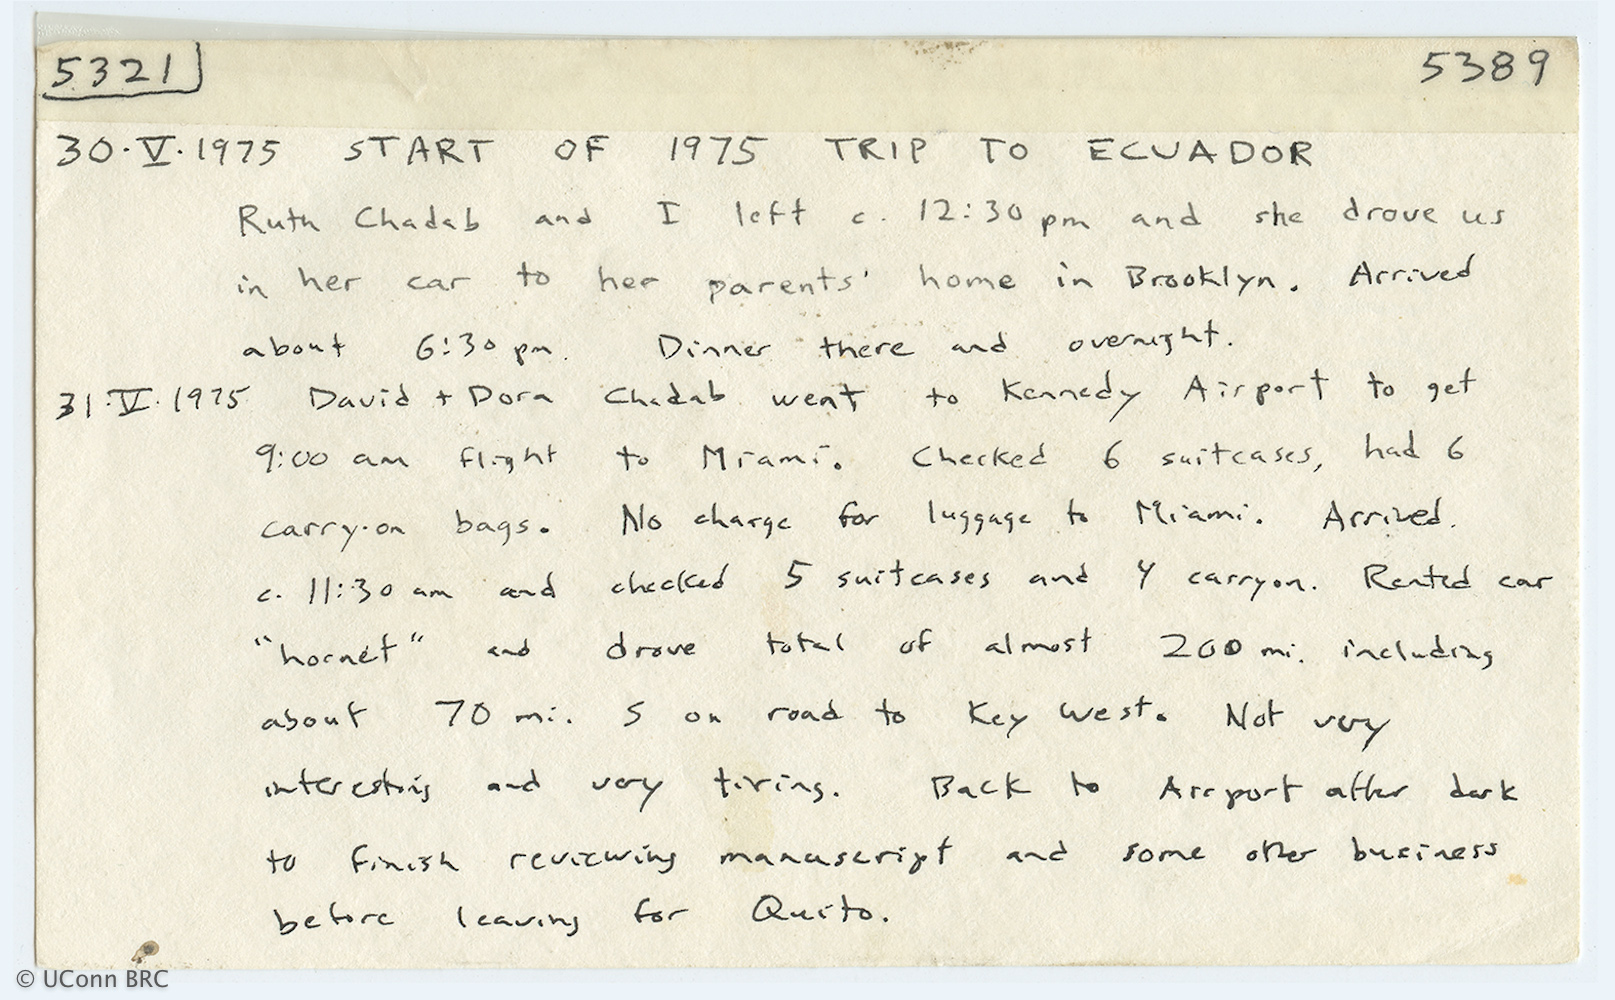 5321 5389
30·V·1975 START OF 1975 TRIP TO ECUADOR
Ruth Chadab and I left c. 12:30 pm and she drove us
in her car to her parents' home in Brooklyn. Arrived
about 6:30 pm. Dinner there and overnight.
31·V·1975 David + Dora Chadab went to Kennedy Airport to get
9:00 am flight to Miami. Checked 6 suitcases, had 6
carry-on bags. No charge for luggage to Miami. Arrived.
c. 11:30 am and checked 5 suitcases and 4 carryon. Rented car
"hornet" and drove total of almost 200 mi. including
about 70 mi. S on road to Key West. Not very
interesting and very tiring. Back to Airport after dark
to finish reviewing manuscript and some other business
before leaving for Quito.
© UConn BRC